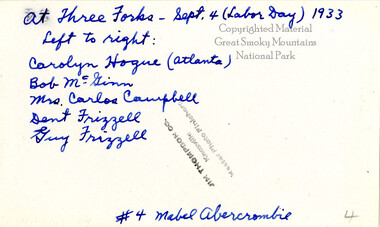 At Three Forks - Sept. 4 (Labor Day) 1933
Left to right:
Carolyn Hogue (Atlanta)
Bob McGinn
Mrs. Carlos Campbell
Dent Frizzell
Guy Frizzell
#4 Mabel Abercrombie
4
Copyrighted Material
Great Smoky Mountains
National Park
JIM THOMPSON CO.
Knoxville
Master Photo Finishers